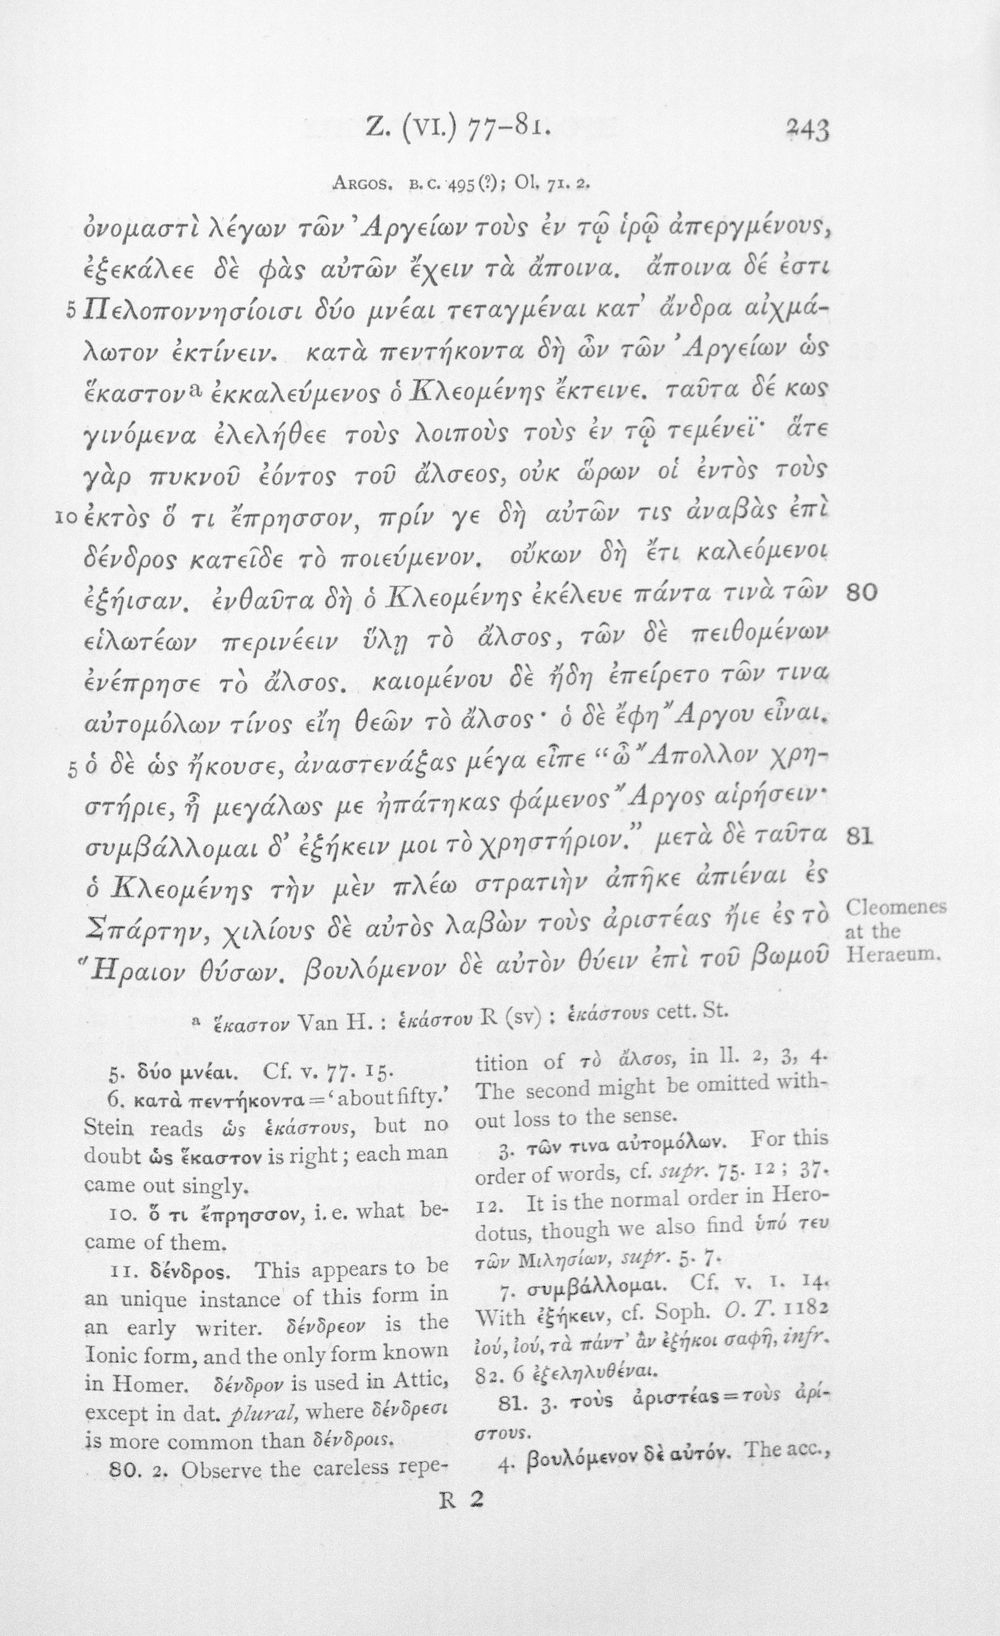 Z. (VI.) 77–81.
243
ARGOS. B.C. 495 (?); Ol. 71. 2.
ὀνομαστὶ λέγων τῶν Ἀργείων τοὺς ἐν τῷ ἱρῷ ἀπεργμένους,
ἐξεκάλεε δὲ φὰς αὐτῶν ἔχειν τὰ ἄποινα. ἄποινα δέ ἐστι
5 Πελοποννησίοισι δύο μνέαι τεταγμέναι κατ' ἄνδρα αἰχμά-
λωτον ἐκτίνειν. κατὰ πεντήκοντα δὴ ὦν τῶν Ἀργείων ὡς
ἕκαστον ᵃ ἐκκαλεύμενος ὁ Κλεομένης ἔκτεινε. ταῦτα δέ κως
γινόμενα ἐλελήθεε τοὺς λοιποὺς τοὺς ἐν τῷ τεμένεϊ· ἅτε
γὰρ πυκνοῦ ἐόντος τοῦ ἄλσεος, οὐκ ὥρων οἱ ἐντὸς τοὺς
10 ἐκτὸς ὅ τι ἔπρησσον, πρίν γε δὴ αὐτῶν τις ἀναβὰς ἐπὶ
δένδρος κατεῖδε τὸ ποιεύμενον. οὔκων δὴ ἔτι καλεόμενοι
ἐξήισαν. ἐνθαῦτα δὴ ὁ Κλεομένης ἐκέλευε πάντα τινὰ τῶν 80
εἱλωτέων περινέειν ὕλῃ τὸ ἄλσος, τῶν δὲ πειθομένων
ἐνέπρησε τὸ ἄλσος. καιομένου δὲ ἤδη ἐπείρετο τῶν τινα
αὐτομόλων τίνος εἴη θεῶν τὸ ἄλσος· ὁ δὲ ἔφη Ἄργου εἶναι.
5 ὁ δὲ ὡς ἤκουσε, ἀναστενάξας μέγα εἶπε “ὦ Ἄπολλον χρη-
στήριε, ἦ μεγάλως με ἠπάτηκας φάμενος Ἄργος αἱρήσειν·
συμβάλλομαι δ' ἐξήκειν μοι τὸ χρηστήριον.” μετὰ δὲ ταῦτα 81
ὁ Κλεομένης τὴν μὲν πλέω στρατιὴν ἀπῆκε ἀπιέναι ἐς
Σπάρτην, χιλίους δὲ αὐτὸς λαβὼν τοὺς ἀριστέας ἤιε ἐς τὸ
Ἥραιον θύσων. βουλόμενον δὲ αὐτὸν θύειν ἐπὶ τοῦ βωμοῦ
Cleomenes
at the
Heraeum.
ᵃ ἕκαστον Van H. : ἑκάστου R (sv) : ἑκάστους cett. St.
5. δύο μνέαι. Cf. v. 77. 15.
6. κατὰ πεντήκοντα = ‘about fifty.’
Stein reads ὡς ἑκάστους, but no
doubt ὡς ἕκαστον is right; each man
came out singly.
10. ὅ τι ἔπρησσον, i. e. what be-
came of them.
11. δένδρος. This appears to be
an unique instance of this form in
an early writer. δένδρεον is the
Ionic form, and the only form known
in Homer. δένδρον is used in Attic,
except in dat. plural, where δένδρεσι
is more common than δένδροις.
80. 2. Observe the careless repe-
tition of τὸ ἄλσος, in ll. 2, 3, 4.
The second might be omitted with-
out loss to the sense.
3. τῶν τινα αὐτομόλων. For this
order of words, cf. supr. 75. 12; 37.
12. It is the normal order in Hero-
dotus, though we also find ὑπό τευ
τῶν Μιλησίων, supr. 5. 7.
7. συμβάλλομαι. Cf. v. 1. 14.
With ἐξήκειν, cf. Soph. O. T. 1182
ἰού, ἰού, τὰ πάντ' ἂν ἐξήκοι σαφῆ, infr.
82. 6 ἐξεληλυθέναι.
81. 3. τοὺς ἀριστέας = τοὺς ἀρί-
στους.
4. βουλόμενον δὲ αὐτόν. The acc.,
R 2